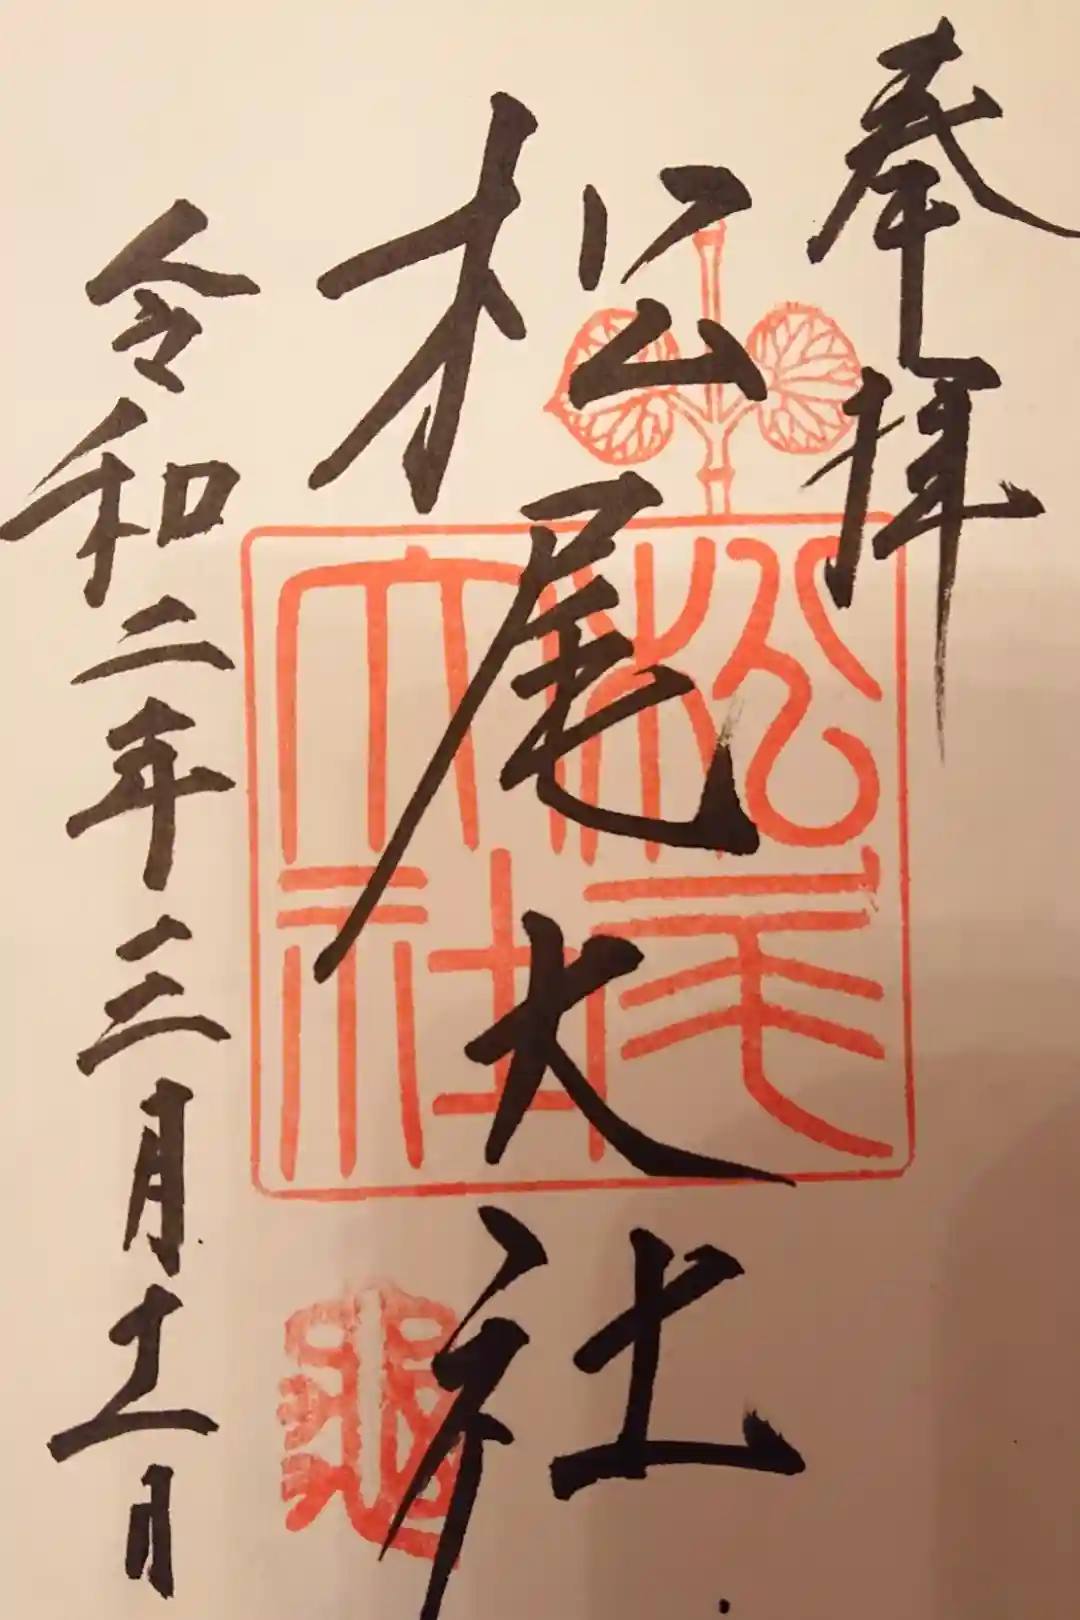 奉拝
松尾大社
令和二年三月十一日
松尾大社